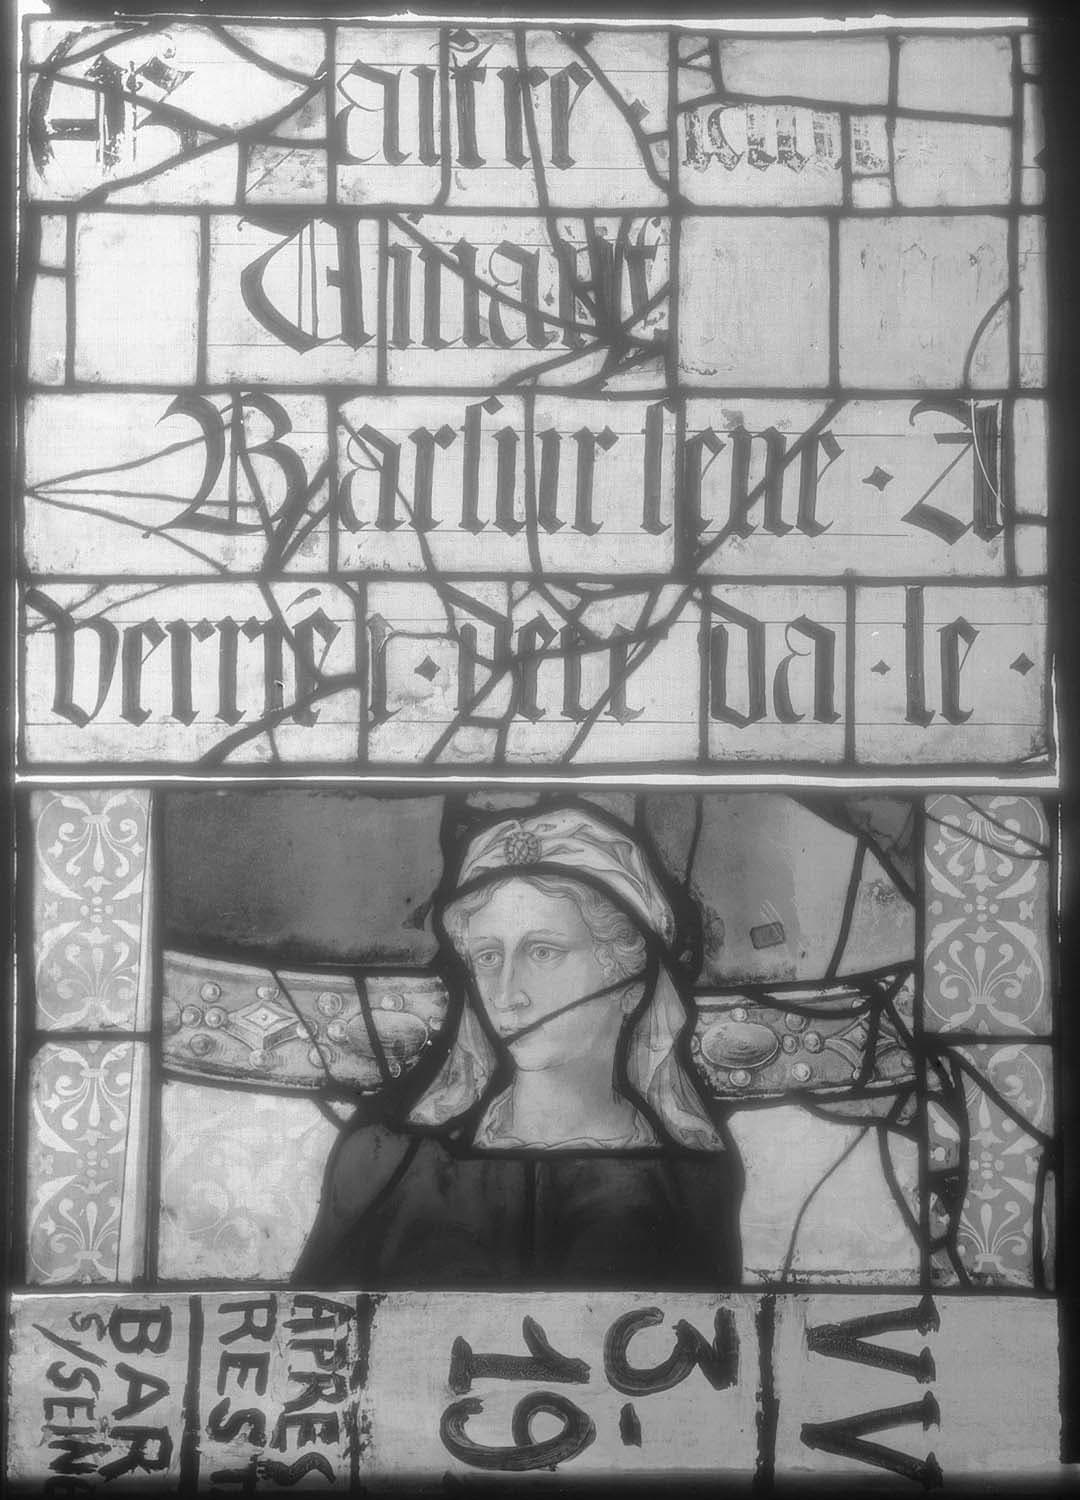 Maistre
Vivant
Barsursene · A
verrier · dece da · le ·
BAR
S/SEINE
APRES
REST
3-
19
VV